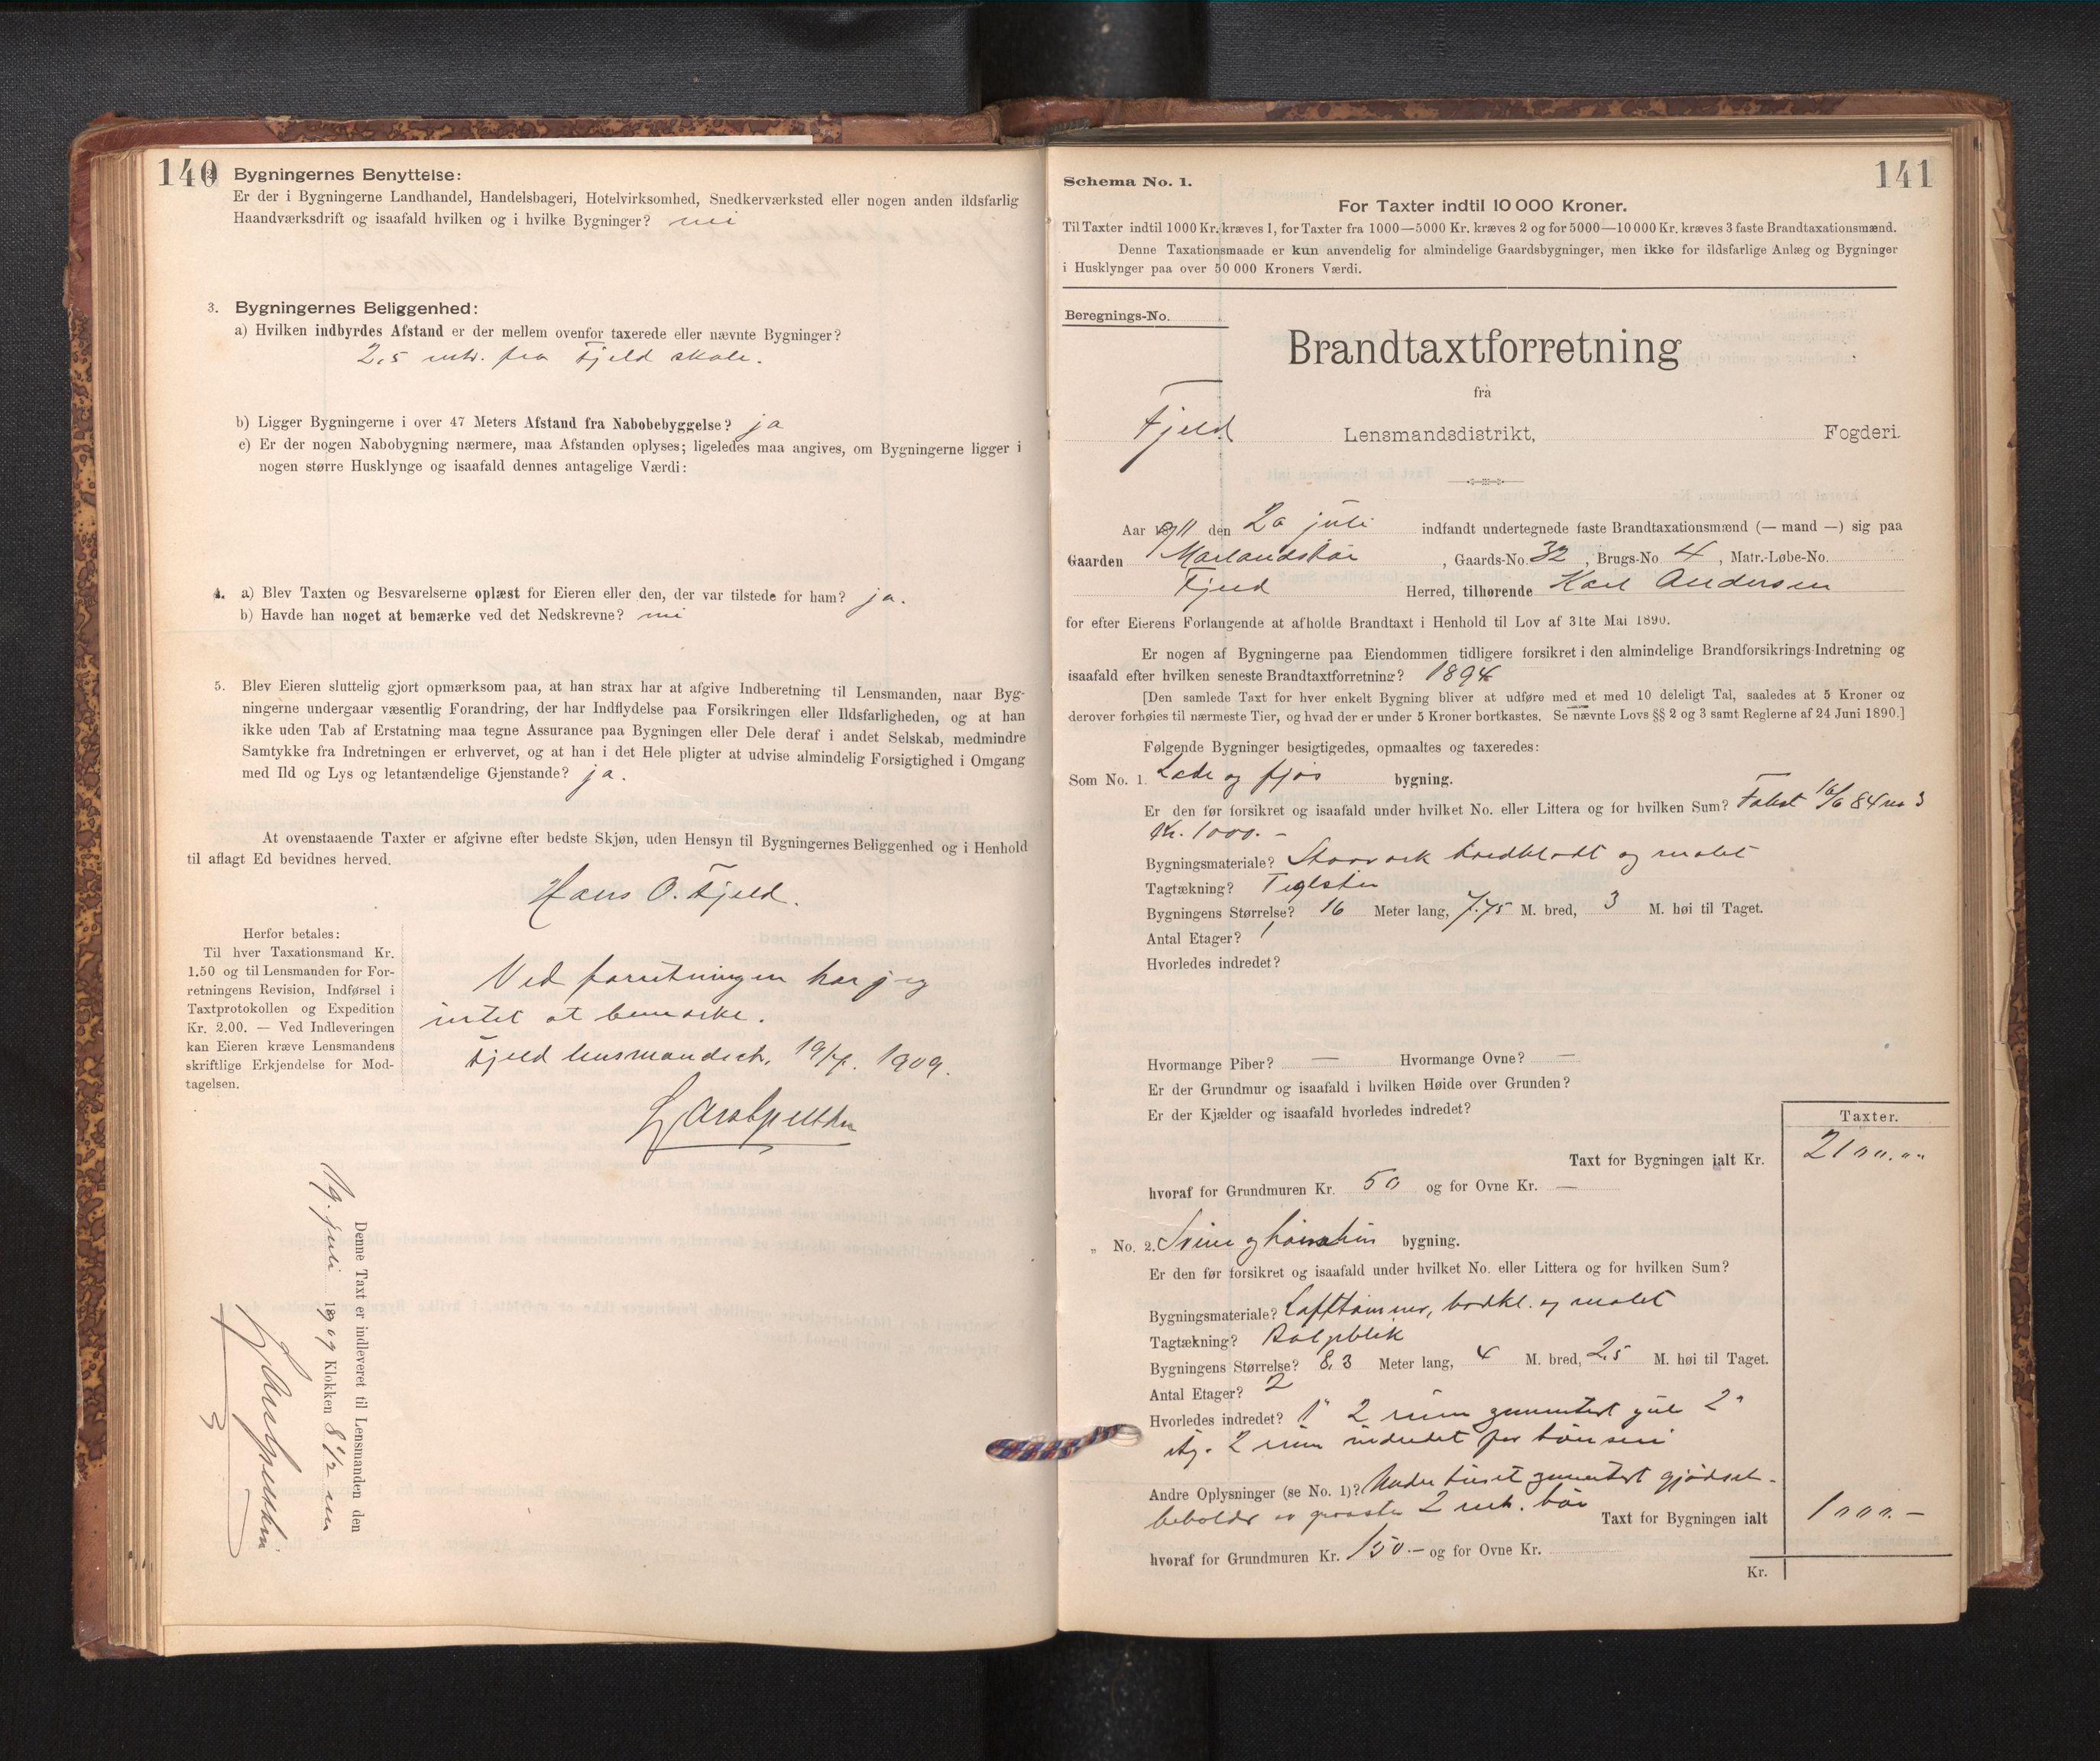 140
2. Bygningernes Benyttelse:
Er der i Bygningerne Landhandel, Handelsbageri, Hotelvirksomhed, Snedkerværksted eller nogen anden ildsfarlig
Haandværksdrift og isaafald hvilken og i hvilke Bygninger? nei
3. Bygningernes Beliggenhed:
a) Hvilken indbyrdes Afstand er der mellem ovenfor taxerede eller nævnte Bygninger?
2,5 mtr. fra Fjeld skole.
b) Ligger Bygningerne i over 47 Meters Afstand fra Nabobebyggelse? ja
c) Er der nogen Nabobygning nærmere, maa Afstanden oplyses; ligeledes maa angives, om Bygningerne ligger i
nogen større Husklynge og isaafald dennes antagelige Værdi:
4. a) Blev Taxten og Besvarelserne oplæst for Eieren eller den, der var tilstede for ham? ja.
b) Havde han noget at bemærke ved det Nedskrevne? nei
5. Blev Eieren sluttelig gjort opmærksom paa, at han strax har at afgive Indberetning til Lensmanden, naar Byg-
ningerne undergaar væsentlig Forandring, der har Indflydelse paa Forsikringen eller Ildsfarligheden, og at han
ikke uden Tab af Erstatning maa tegne Assurance paa Bygningen eller Dele deraf i andet Selskab, medmindre
Samtykke fra Indretningen er erhvervet, og at han i det Hele pligter at udvise almindelig Forsigtighed i Omgang
med Ild og Lys og letantændelige Gjenstande? ja.
At ovenstaaende Taxter er afgivne efter bedste Skjøn, uden Hensyn til Bygningernes Beliggenhed og i Henhold
til aflagt Ed bevidnes herved.
Hans O. Fjeld.
Herfor betales:
Til hver Taxationsmand Kr.
1.50 og til Lensmanden for For-
retningens Revision, Indførsel i
Taxtprotokollen og Expedition
Kr. 2.00. — Ved Indleveringen
kan Eieren kræve Lensmandens
skriftlige Erkjendelse for Mod-
tagelsen.
Ved forretningen har jeg
intet at bemærke.
Fjeld lensmandsctr. 19/7. 1909.
Denne Taxt er indleveret til Lensmanden den
19. juli 1909 Klokken 8 1/2 em
141
Schema No. 1.
For Taxter indtil 10 000 Kroner.
Til Taxter indtil 1000 Kr. kræves 1, for Taxter fra 1000—5000 Kr. kræves 2 og for 5000—10 000 Kr. kræves 3 faste Brandtaxationsmænd.
Denne Taxationsmaade er kun anvendelig for almindelige Gaardsbygninger, men ikke for ildsfarlige Anlæg og Bygninger
i Husklynger paa over 50 000 Kroners Værdi.
Beregnings-No.
Brandtaxtforretning
fra
Fjeld Lensmandsdistrikt, Fogderi.
Aar 1911 den 20 juli indfandt undertegnede faste Brandtaxationsmænd (— mand —) sig paa
Gaarden , Gaards-No. 32, Brugs-No 4, Matr.-Løbe-No.
Fjeld Herred, tilhørende Karl Andersen
for efter Eierens Forlangende at afholde Brandtaxt i Henhold til Lov af 31te Mai 1890.
Er nogen af Bygningerne paa Eiendommen tidligere forsikret i den almindelige Brandforsikrings-Indretning og
isaafald efter hvilken seneste Brandtaxtforretning? 1894
[Den samlede Taxt for hver enkelt Bygning bliver at udføre med et med 10 deleligt Tal, saaledes at 5 Kroner og
derover forhøies til nærmeste Tier, og hvad der er under 5 Kroner bortkastes. Se nævnte Lovs §§ 2 og 3 samt Reglerne af 24 Juni 1890.]
Følgende Bygninger besigtigedes, opmaaltes og taxeredes:
Som No. 1. Lade og fjøs bygning.
Er den før forsikret og isaafald under hvilket No. eller Littera og for hvilken Sum? Takst 16/6 84 no 3
Kr. 1000. -
Bygningsmateriale? Stavverk bordklædt og malet
Tagtækning? Teglsten
Bygningens Størrelse? 16 Meter lang, 7.75 M. bred, 3 M. høi til Taget.
Antal Etager? 1
Hvorledes indredet?
Hvormange Piber? — Hvormange Ovne? —
Er der Grundmur og isaafald i hvilken Høide over Grunden?
Er der Kjælder og isaafald hvorledes indredet?
Taxter.
Taxt for Bygningen ialt Kr. 2100.00
hvoraf for Grundmuren Kr. 50 og for Ovne Kr. —
" No. 2. Svine og hønsehus bygning.
Er den før forsikret og isaafald under hvilket No. eller Littera og for hvilken Sum?
Bygningsmateriale? Lafttømmer, bordkl. og malet
Tagtækning? Bølgeblik
Bygningens Størrelse? 8,3 Meter lang, 4 M. bred, 2,5 M. høi til Taget.
Antal Etager? 2
Hvorledes indredet? 1" 2 rum gul 2"
etg. 2 rum indredet for
Andre Oplysninger (se No. 1)? Under huset gjødsel-
beholder av graasten 2 mtr. høi Taxt for Bygningen ialt 1000. -
hvoraf for Grundmuren Kr. 150.- og for Ovne Kr.
Kr.